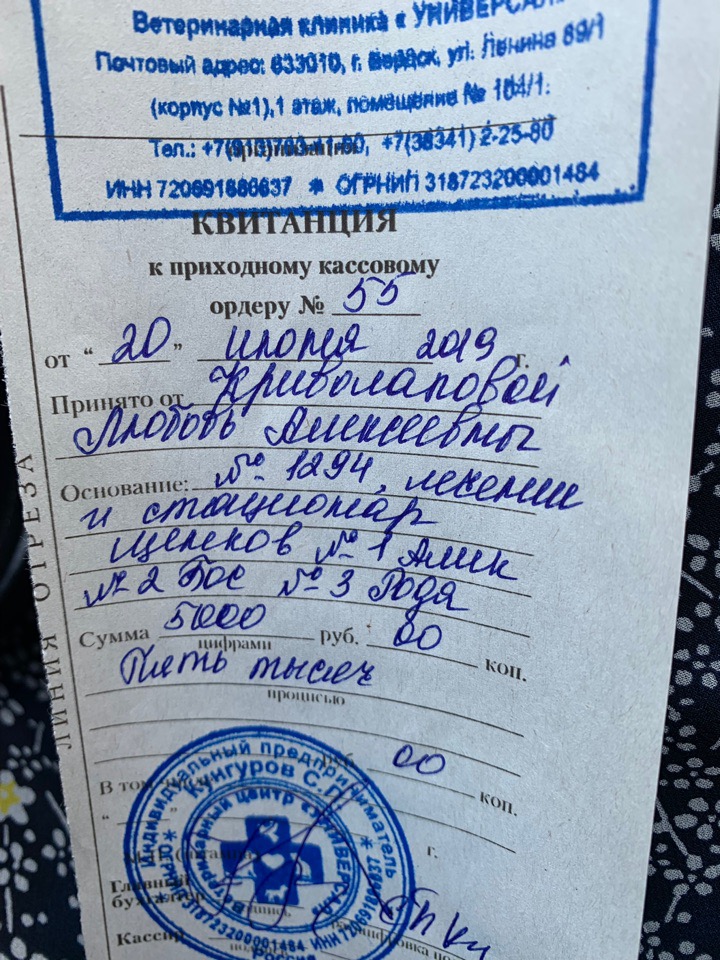 Ветеринарная клиника « УНИВЕРСАЛ
Почтовый адрес: 633010, г. Бердск, ул. Ленина 89/1
(корпус №1),1 этаж, помещение № 104/1.
Тел.: +7(913)793-41-60, +7(38341) 2-25-80
ИНН 720691886637 * ОГРНИП 318723200001484
КВИТАНЦИЯ
к приходному кассовому
ордеру № 55
от “ 20 ” июля 2019 г.
Принято от Криволаповой
Любовь Алексеевны
Основание: № 1294, лечение
и стационар
щенков № 1 Алик
№ 2 Бос № 3 Родя
Сумма 5000 руб. 00 коп.
цифрами
Пять тысяч
прописью
руб. 00 коп.
В том
“ г.
Главный
бухгалтер
Кассир
ЛИНИЯ ОТРЕЗА
Индивидуальный предприниматель
Кунгуров С.П.
Ветеринарный центр «УНИВЕРСАЛ
ОГРНИП 318723200001484 ИНН 720691886637
Россия